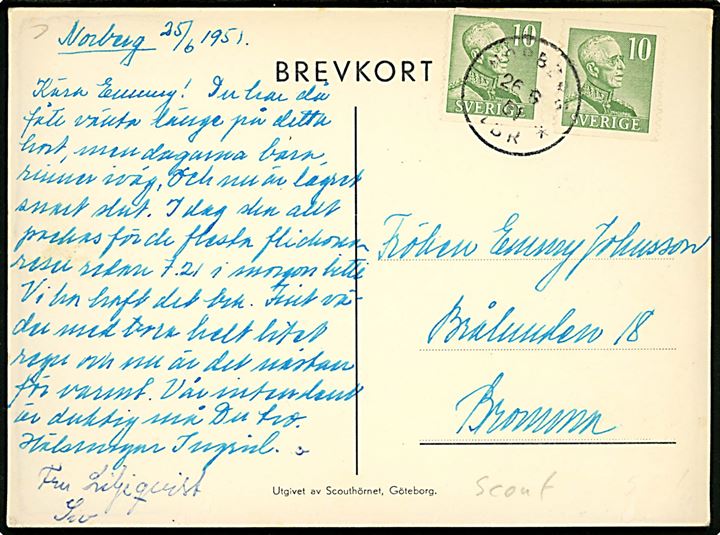 Norberg 25/6 1951.
BREVKORT
10
SVERIGE
10
SVERIGE
26 6
51
Kära Emmy! Du har då
fått vänta länge på detta
kort, men dagarna bara
rinner iväg. Och nu är lägret
snart slut. I dag ska allt
packas för de flesta flickorna
reser redan 7.21 i morgon bitti
Vi har haft det bra. Fint vä-
der med bara helt litet
regn och nu är det nästan
för varmt. Vår intendent
är duktig må Du tro.
Hälsningar Ingrid.
Fru Liljeqvist
Fröken Emmy Johnsson
Brålunden 18
Bromma
Utgivet av Scouthörnet, Göteborg.
Scout